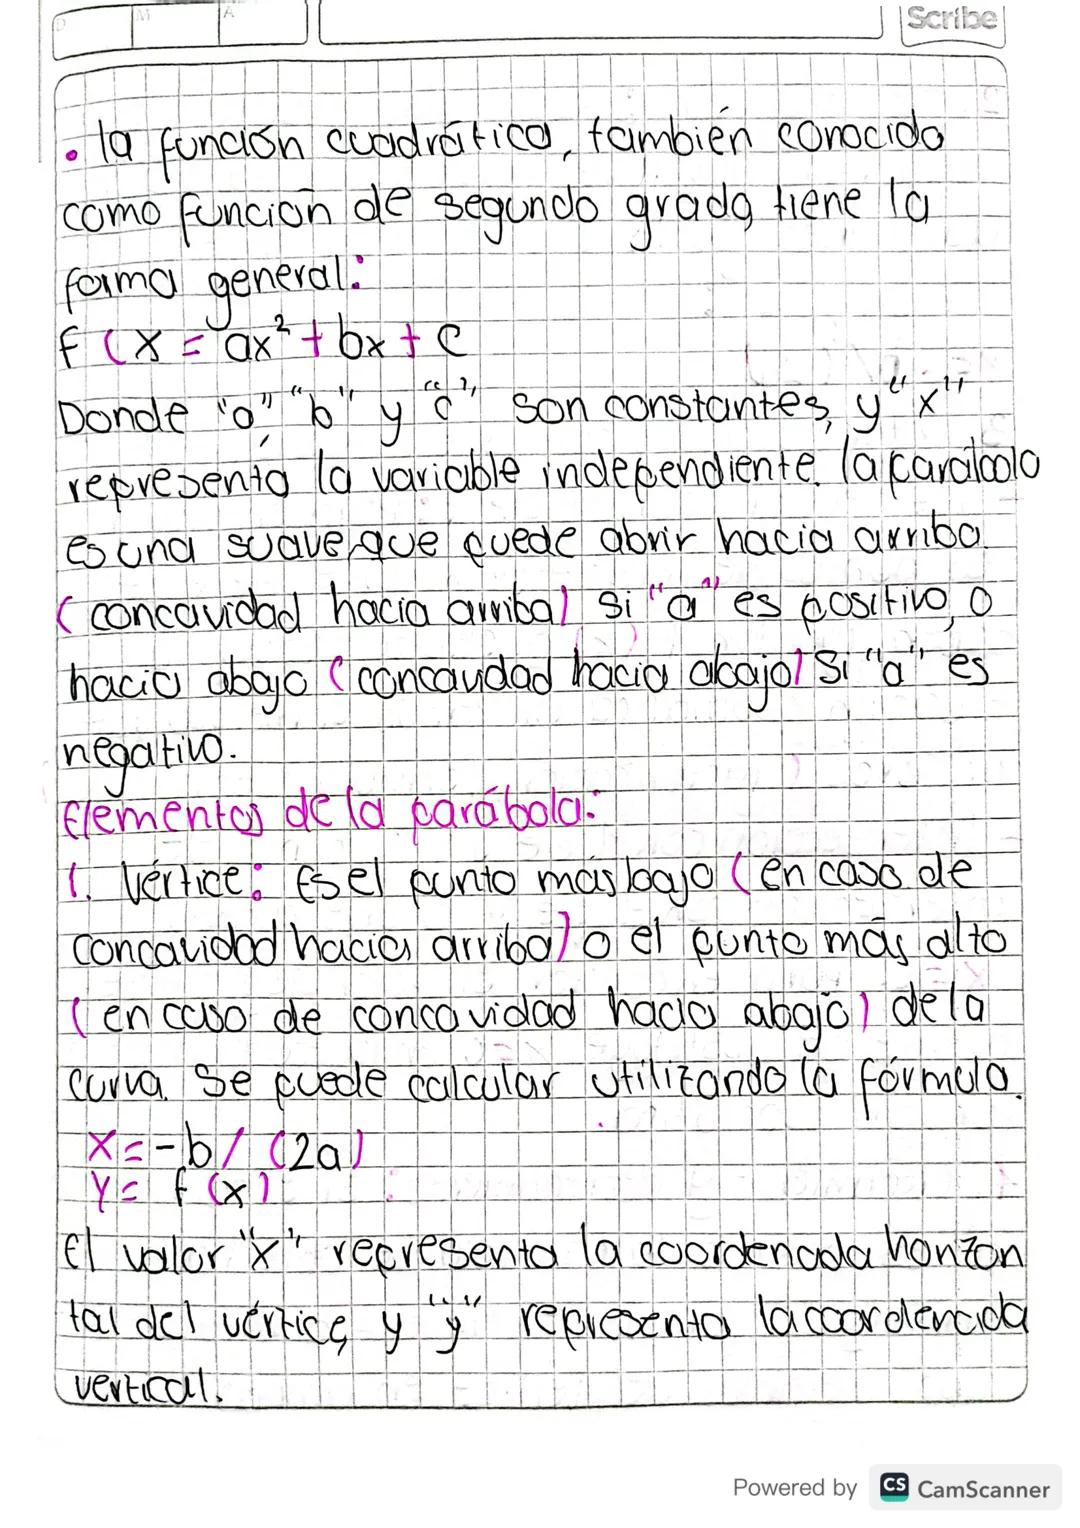 D M A Scribe
. la función cuadrática, también conocida
como función de segundo grado, tiene la
forma general:
f (x = ax² + bx + c
Donde "a", "b" y "c" son constantes, y "x"
representa la variable independiente. la parábola
es una suave, que puede abrir hacia arriba.
(concavidad hacia arriba) si "a" es positivo, o
hacia abajo (concavidad hacia abajo) Si "a" es
negativo.
Elementos de la parábola:
1. Vértice: Es el punto más bajo (en caso de
concavidad hacia arriba) o el punto más alto
(en caso de concavidad hacia abajo) de la
curva. Se puede calcular utilizando la fórmula.
x = -b / (2a)
y = f (x)
El valor "x" representa la coordenada horizon
tal del vértice, y "y" representa la coordenada
vertical.
Powered by CS CamScanner